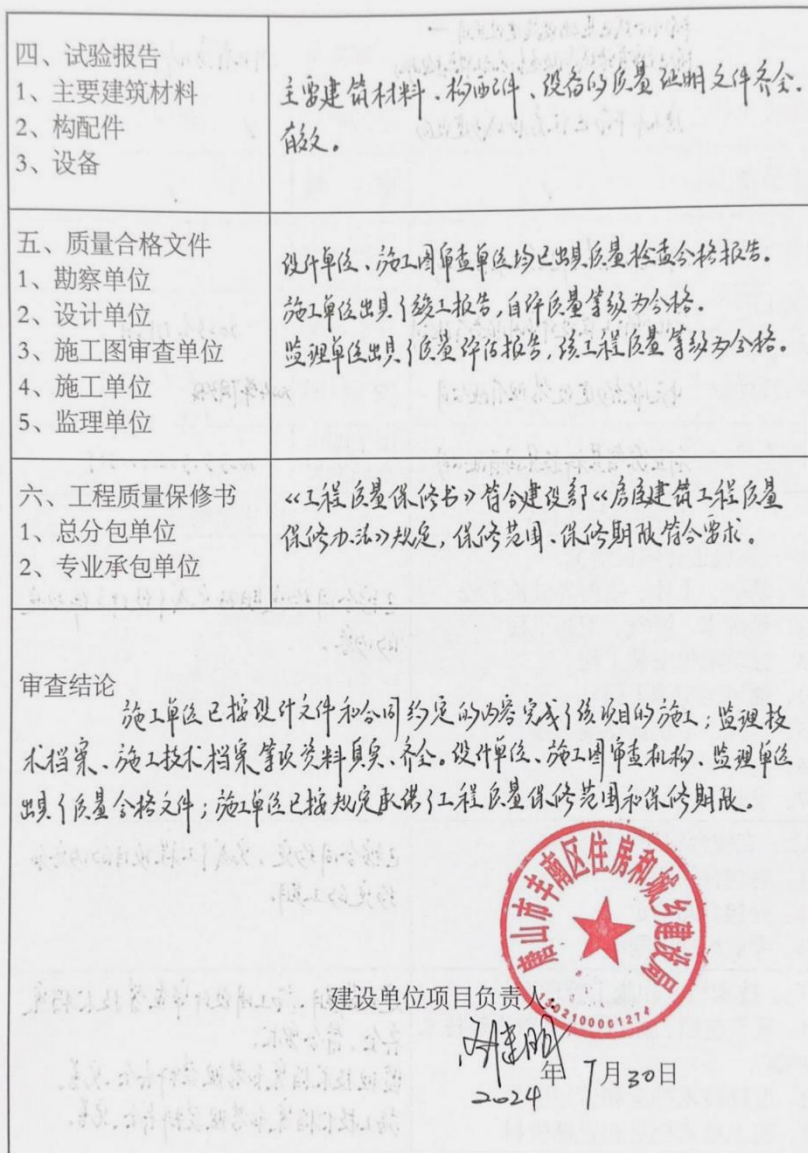 四、试验报告
1、主要建筑材料
2、构配件
3、设备
主要建筑材料、构配件、设备的质量证明文件齐全、
有效。
五、质量合格文件
1、勘察单位
2、设计单位
3、施工图审查单位
4、施工单位
5、监理单位
设计单位、施工图审查单位均已出具质量检查合格报告。
施工单位出具了竣工报告，自评质量等级为合格。
监理单位出具了质量评估报告，该工程质量等级为合格。
六、工程质量保修书
1、总分包单位
2、专业承包单位
《工程质量保修书》符合建设部《房屋建筑工程质量
保修办法》规定，保修范围、保修期限符合要求。
审查结论
施工单位已按设计文件和合同约定的内容完成了该项目的施工；监理技
术档案、施工技术档案等项资料真实、齐全。设计单位、施工图审查机构、监理单位
出具了质量合格文件；施工单位已按规定承诺了工程质量保修范围和保修期限。
唐山市丰南区住房和城乡建设局
建设单位项目负责人：
2024年7月30日